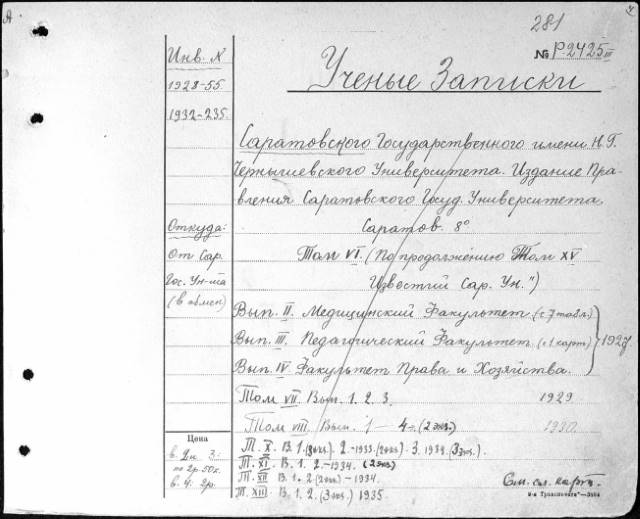 А
281
№ Р-2425 III
Ученые Записки
Инв. N
1928-55.
1932-235.
Саратовского Государственного имени Н.Г.
Чернышевского Университета. Издание Пра-
вления Саратовского Госуд. Университета,
Саратов. 8°
Откуда:
От Сар.
Гос. Ун-та
(в обмен)
Том VI. (По продолжению Том XV
Известий Сар. Ун.")
Вып. II. Медицинский Факультет (с 7 табл.)
Вып. III. Педагогический Факультет (с 1 карт)
Вып. IV Факультет Права и Хозяйства.
1927
Том VII. Вып. 1. 2. 3. 1929
Том VIII. Вып. 1 — 4. (2 экз.) 1930.
Цена
в. 2и 3:
по 2р. 50к.
в. 4: 2р.
Т. X. В. 1. (2экз.) 2.-1933. (2экз.) 3. 1934. (3экз.).
Т. XI. В. 1. 2.-1934. (2экз)
Т. XII В. 1. 2 (2экз) -1934.
Т. XIII. В. 1. 2. (3экз.) 1935.
См. сл. карт.